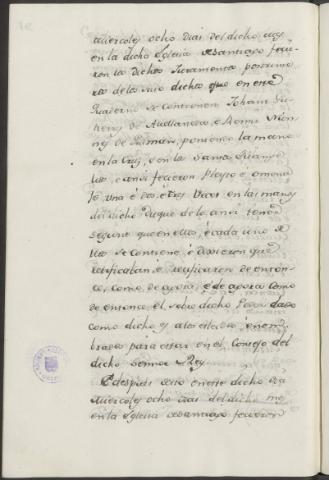 miercoles ocho dias del dicho mes
en la dicha Iglesia de Santiago fecie-
ron los dichos Juramentos por ante
de los suso dichos que en este
Quaderno se contienen Johan Gu-
tierrez de Avellaneda e
de Guzman, poniendo la mano
en la Cruz, con los Santos Evange-
lios, e ansi fecieron Pleyto e omena-
je una é dos, é tres Veces en las manos
del dicho Duque de lo ansi tener
segund que en ellos, é cada uno de
ellos se contiene, é dixieron que
retificaban, é retificaron de enton-
ce, como de agora, é de agora como
de entonce el sobre dicho Poder dado
como dicho es a los
brados para estar en el Consejo del
dicho Sennor Rey.
E despues desto en este dicho dia
Miercoles ocho dias del dicho mes
en la Iglesia de Santiago fecieron